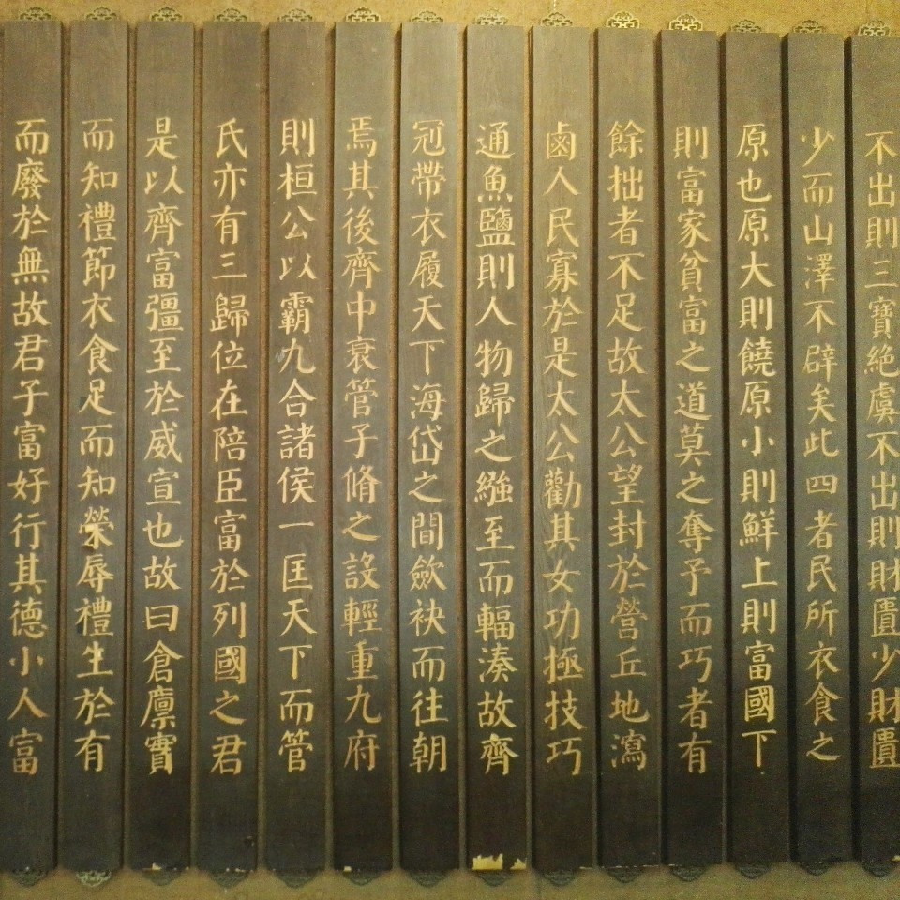 不出則三寶絶虞不出則財匱少財匱
少而山澤不辟矣此四者民所衣食之
原也原大則饒原小則鮮上則富國下
則富家貧富之道莫之奪予而巧者有
餘拙者不足故太公望封於營丘地瀉
鹵人民寡於是太公勸其女功極技巧
通魚鹽則人物歸之繈至而輻湊故齊
冠帶衣履天下海岱之間歛袂而往朝
焉其後齊中衰管子脩之設輕重九府
則桓公以霸九合諸侯一匡天下而管
氏亦有三歸位在陪臣富於列國之君
是以齊富彊至於威宣也故曰倉廪實
而知禮節衣食足而知榮辱禮生於有
而廢於無故君子富好行其德小人富